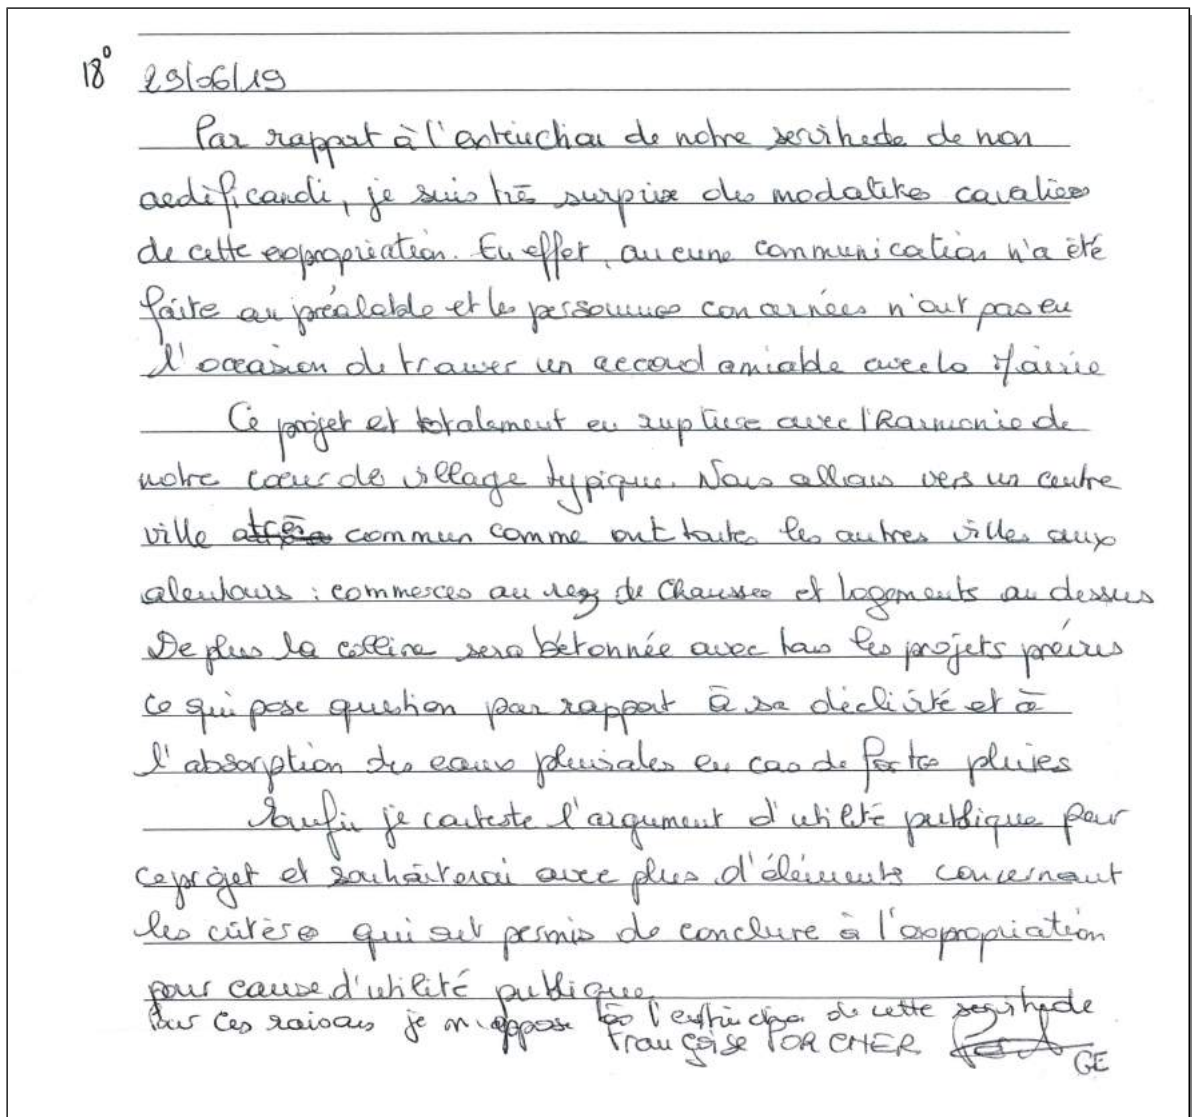 18° 29/06/19
Par rapport à l'extinction de notre servitude de non
aedificandi, je suis très surprise des modalités cavalières
de cette expropriation. En effet, aucune communication n'a été
faite au préalable et les personnes concernées n'ont pas eu
l'occasion de trouver un accord amiable avec la Mairie
Ce projet et totalement en rupture avec l'harmonie de
notre coeur de village typique. Nous allons vers un centre
ville commun comme ont toutes les autres villes aux
alentours : commerces au rez de chaussee et logements au dessus
De plus la colline sera bétonnée avec tous les projets prévus
ce qui pose question par rapport à sa déclivité et à
l'absorption des eaux pluviales en cas de fortes pluies
Enfin je conteste l'argument d'utilité publique pour
ce projet et souhaiterai avoir plus d'éléments concernant
les critères qui ont permis de conclure à l'expropriation
pour cause d'utilité publique.
Pour ces raisons je m'oppose à l'extinction de cette servitude
Françoise PORCHER
GE